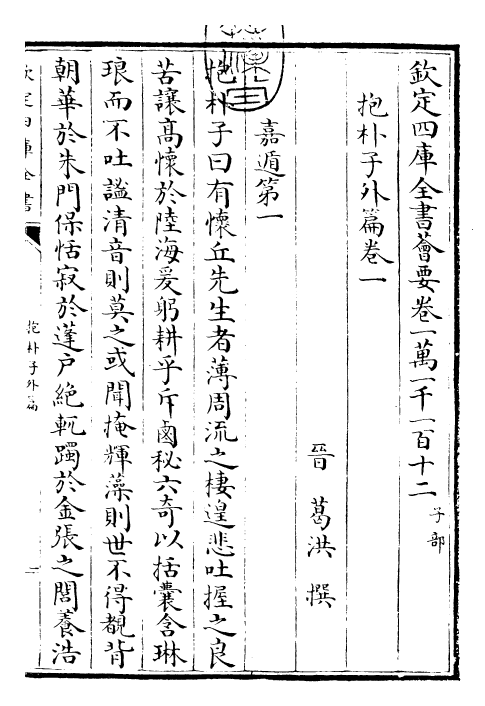 欽定四庫全書薈要卷一萬一千一百十二 子部
抱朴子外篇卷一
晉 葛洪 撰
嘉遁第一
抱朴子曰有懷丘先生者薄周流之棲遑悲吐握之良
苦讓高懷於陸海爰躬耕乎斥鹵秘六奇以括囊含琳
琅而不吐謐清音則莫之或聞掩輝藻則世不得覩背
朝華於朱門保恬寂於蓬戶絶軌躅於金張之閭養浩
欽定四庫全書
抱朴子外篇
一